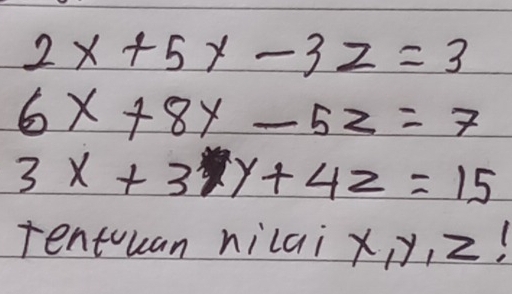 2x + 5y - 3z = 3
6x + 8y - 5z = 7
3x + 3y + 4z = 15
Tentukan nilai x, y, z!